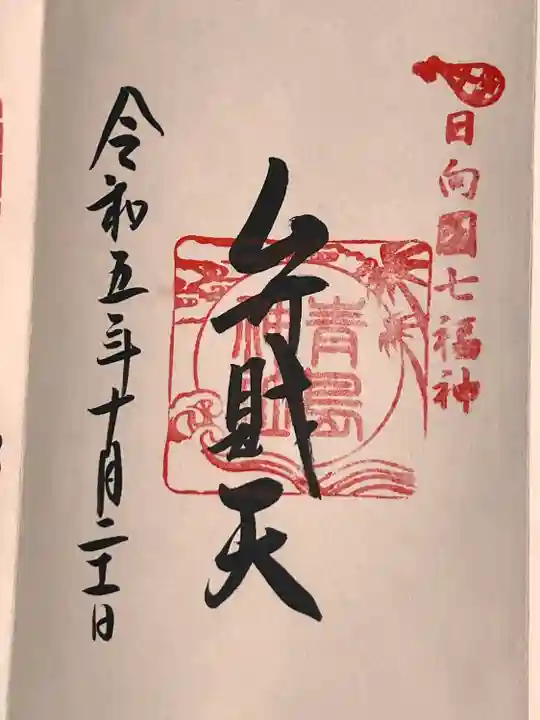 日向國七福神
弁財天
青島
神社
令和五年十月二十一日